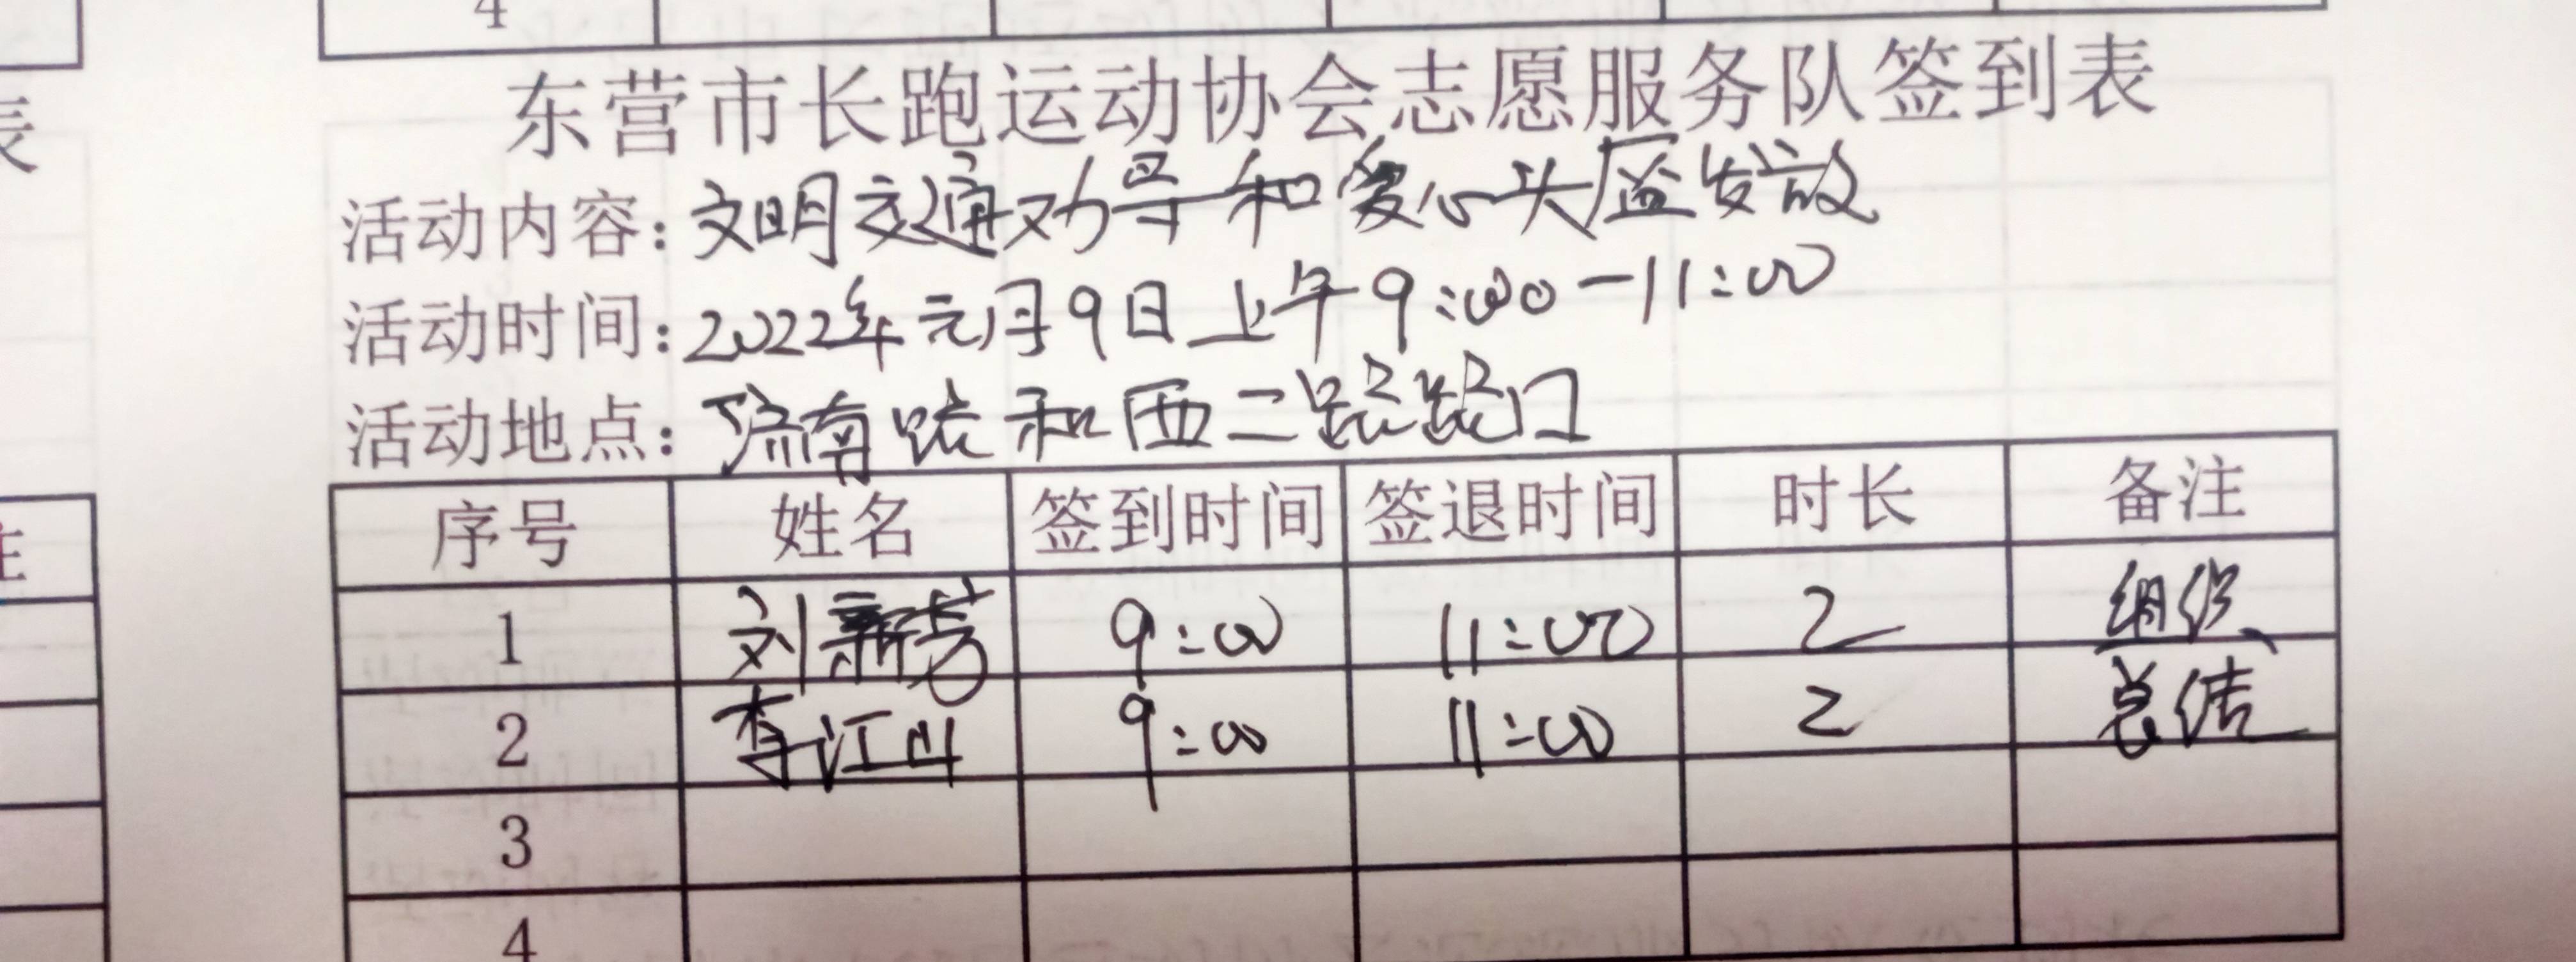 4
东营市长跑运动协会志愿服务队签到表
表
活动内容：文明交通劝导和爱心头盔发放
活动时间：2022年元月9日上午9:00-11:00
活动地点：济南路和西二路路口
序号 姓名 签到时间 签退时间 时长 备注
注
1 刘新芳 9:00 11:00 2 组织
2 李江山 9:00 11:00 2 总结
3
4